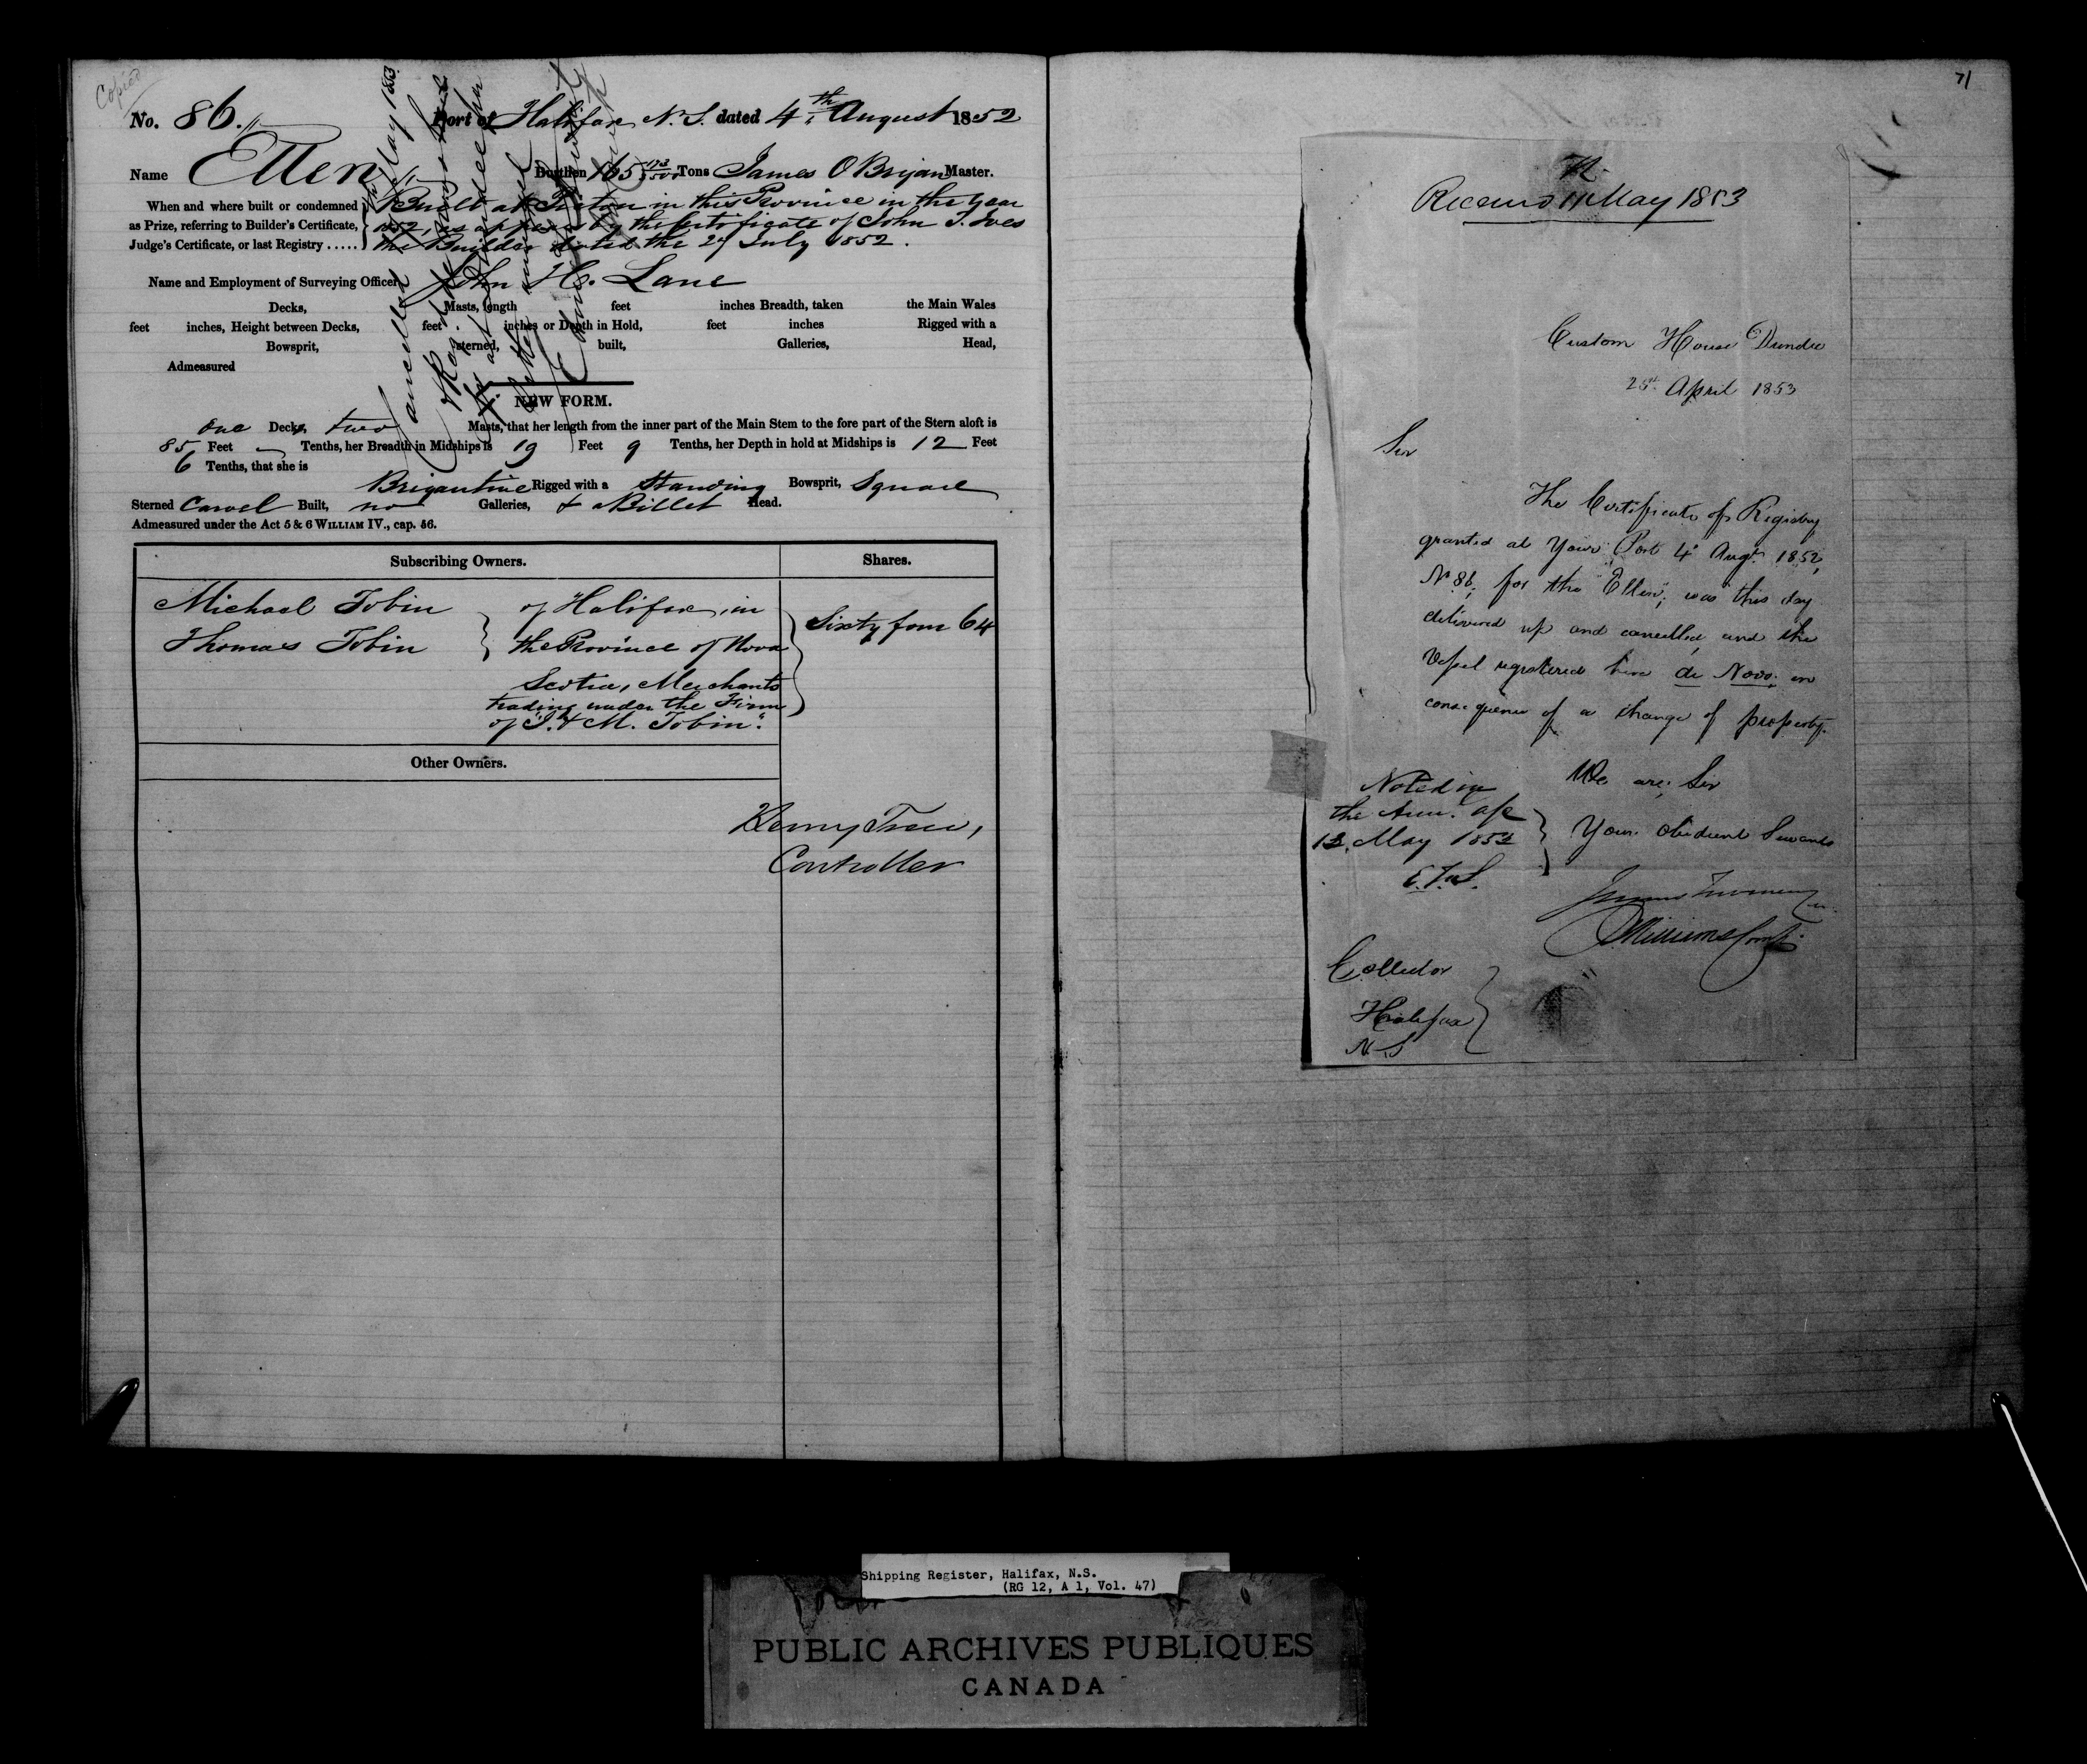 Copied
No. 86. Port of Halifax N.S. dated 4th August 1852
Name Ellen Burthen 165 Tons James O Bryan Master.
When and where built or condemned Built at Pictou in this Province in the year
as Prize, referring to Builder's Certificate, 1852, as appears by the Certificate of John T. Ives
Judge's Certificate, or last Registry ..... the Builder dated the 27 July 1852.
Name and Employment of Surveying Officer John H. Lane
Decks, Masts, length feet inches Breadth, taken the Main Wales
feet inches, Height between Decks, feet inches or Depth in Hold, feet inches Rigged with a
Bowsprit, sterned, built, Galleries, Head,
Admeasured
Cancelled May 1853
NEW FORM.
One Deck two Masts, that her length from the inner part of the Main Stem to the fore part of the Stern aloft is
85 Feet Tenths, her Breadth in Midships is 19 Feet 9 Tenths, her Depth in hold at Midships is 12 Feet
6 Tenths, that she is
Brigantine Rigged with a Standing Bowsprit, Square
Sterned Carvel Built, no Galleries, & a Billet Head.
Admeasured under the Act 5 & 6 WILLIAM IV., cap. 56.
Subscribing Owners. Shares.
Michael Tobin of Halifax, in
Thomas Tobin the Province of Nova
Sixty four 64
Scotia, Merchants
trading under the Firm
of "T. & M. Tobin".
Other Owners.
Henry Trew,
Controller
71
Received 11 May 1853
Custom House Dundee
25th April 1853
Sir
The Certificate of Registry
granted at Your Port 4th Augt. 1852,
No 86, for the "Ellen", was this day
delivered up and cancelled, and the
Vessel registered here de Novo, in
consequence of a change of property.
We are, Sir
Your obedient Servants
Noted in
the
12 May 1853
Collector
Halifax
N.S
Shipping Register, Halifax, N.S.
(RG 12, A 1, Vol. 47)
PUBLIC ARCHIVES PUBLIQUES
CANADA